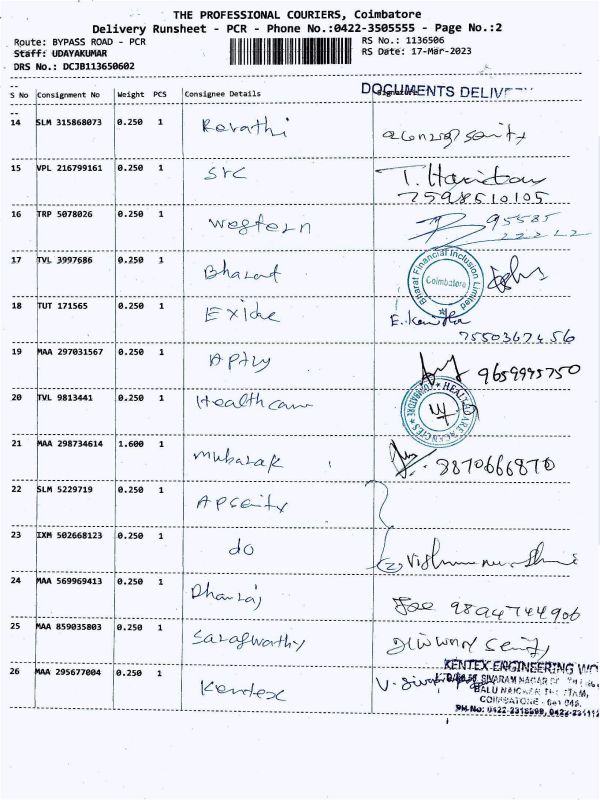 THE PROFESSIONAL COURIERS, Coimbatore
Delivery Runsheet - PCR - Phone No.:0422-3505555 - Page No.:2
Route: BYPASS ROAD - PCR RS No.: 1136506
Staff: UDAYAKUMAR RS Date: 17-Mar-2023
DRS No.: DCJB113650602
DOCUMENTS
S No Consignment No Weight PCS Consignee Details
14 SLM 315868073 0.250 1 Revathi
15 VPL 216799161 0.250 1 SRC T. Hari
7598510105
16 TRP 5078026 0.250 1 Western 95585
22222
17 TVL 3997686 0.250 1 Bharat
Bharat Financial Inclusion Limited
Coimbatore
18 TUT 171565 0.250 1 Exide E. Kavitha
7550367456
19 MAA 297031567 0.250 1 9659995750
20 TVL 9813441 0.250 1 Healthcare
21 MAA 298734614 1.600 1 Mubarak 8870666870
22 SLM 5229719 0.250 1
23 IXM 502668123 0.250 1 do
24 MAA 569969413 0.250 1 Dhanraj 9894744906
25 MAA 859035803 0.250 1 Saraswathy
26 MAA 295677004 0.250 1 Kentex
KENTEX ENGINEERING
SIVARAM NAGAR
COIMBATORE
PH.No: 0422-2318999,